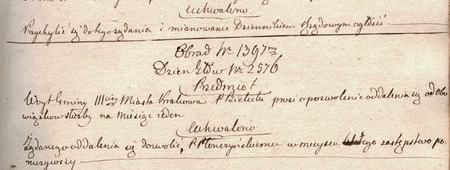 Uchwalono
Przychylić się do tego żądania i mianowanie Dziennikiem rządowym ogłosić
Obrad Nr 1397m
Dzien: Głów: Nr 2576
Przedmiot
Woyt Gminy III Miasta Krakowa P. prosi o pozwolenie oddalenia się od obo
wiązków służby na Miesiąc ieden
Uchwalono
Żądanego oddalenia się dozwolić, P. w mieyscu iego zastępstwo po
ruczywszy